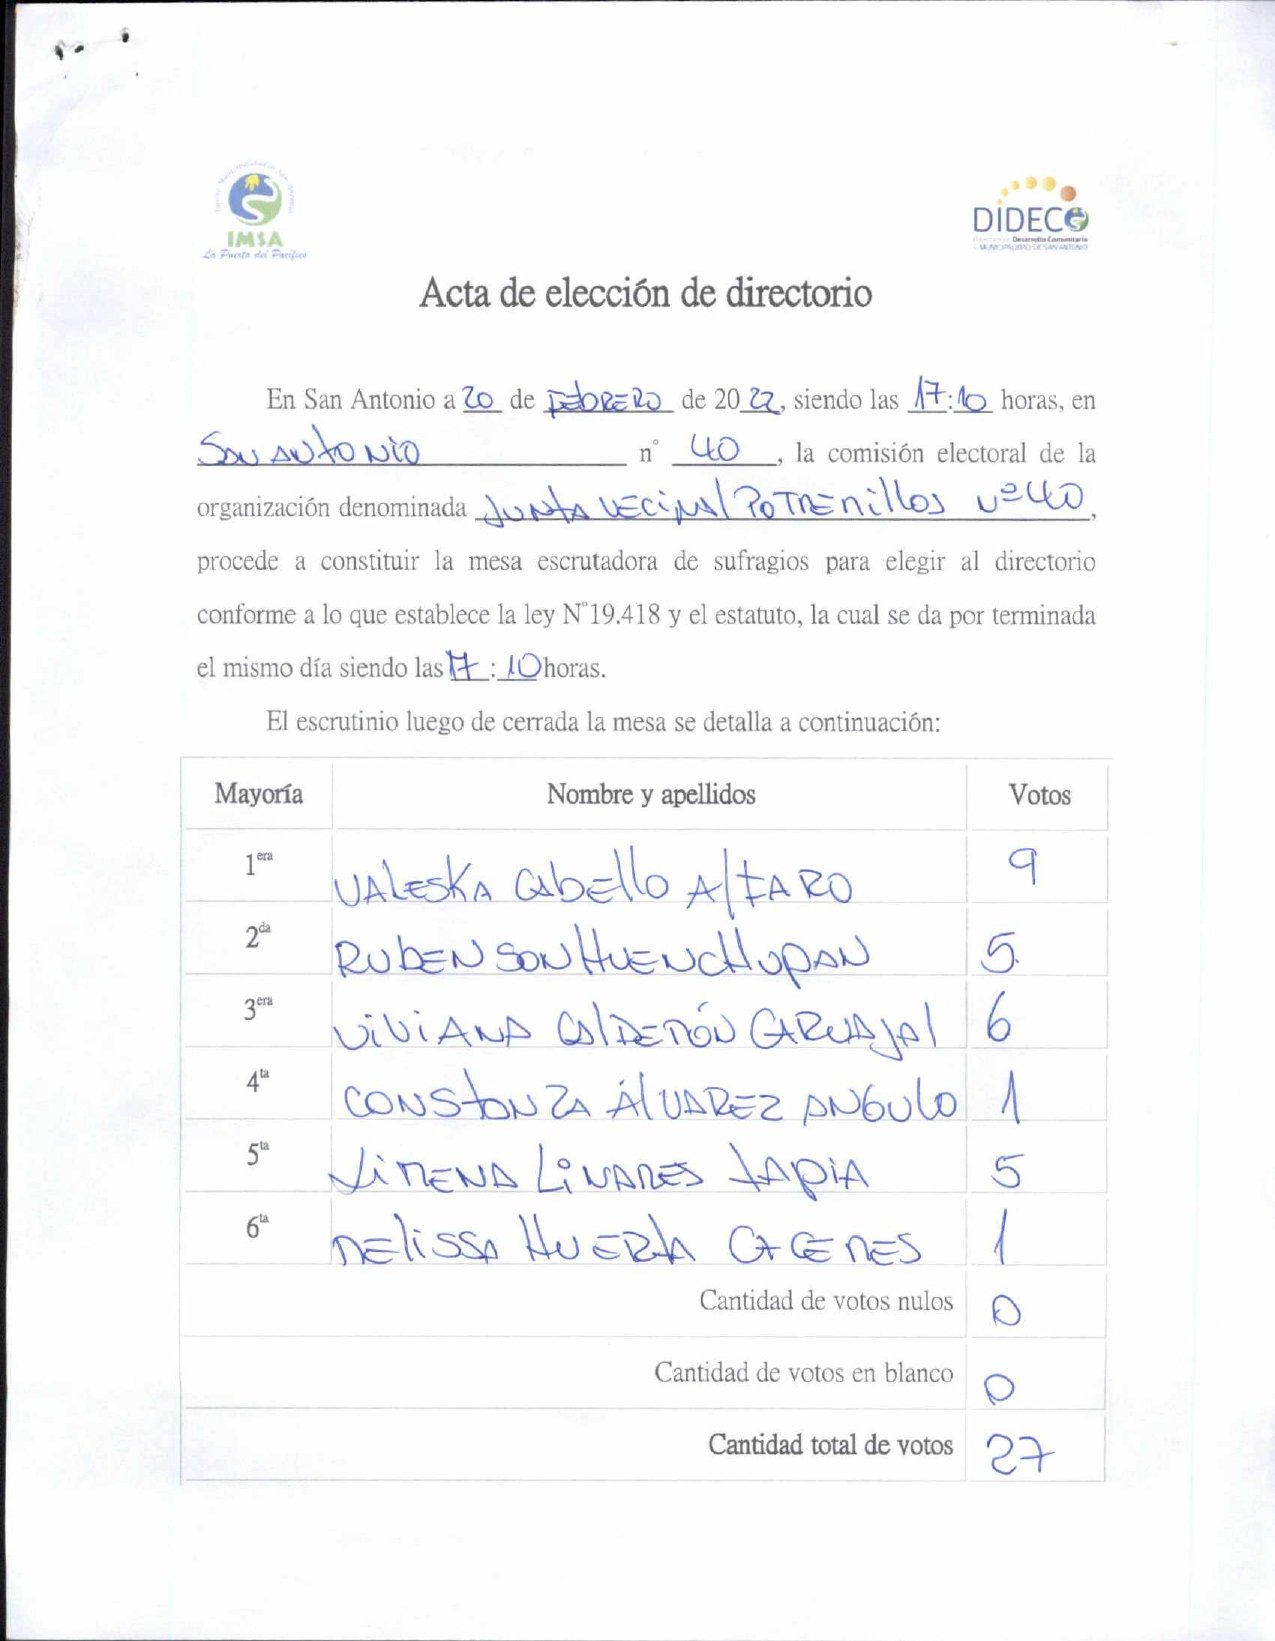 IMSA
La Puerta del Pacífico
DIDECO
Desarrollo Comunitario
MUNICIPALIDAD DE SAN ANTONIO
Acta de elección de directorio
En San Antonio a 20 de FEbRERO de 20 22, siendo las 17:10 horas, en
SAN ANtONiO n° 40, la comisión electoral de la
organización denominada JUNtA VECiNAl POTRERillOS Nº40,
procede a constituir la mesa escrutadora de sufragios para elegir al directorio
conforme a lo que establece la ley N°19.418 y el estatuto, la cual se da por terminada
el mismo día siendo las 17:10 horas.
El escrutinio luego de cerrada la mesa se detalla a continuación:
Mayoría Nombre y apellidos Votos
1era VALESKA CAbEllO AlfARO 9
2da RUbEN SON HUENCHUPAN 5
3era ViViANA CAlDERÓN CARVAJAl 6
4ta CONStANZA ÁlVAREZ ANGULO 1
5ta JiMENA LiNARES tAPiA 5
6ta MEliSSA HUERtA CACERES 1
Cantidad de votos nulos 0
Cantidad de votos en blanco 0
Cantidad total de votos 27